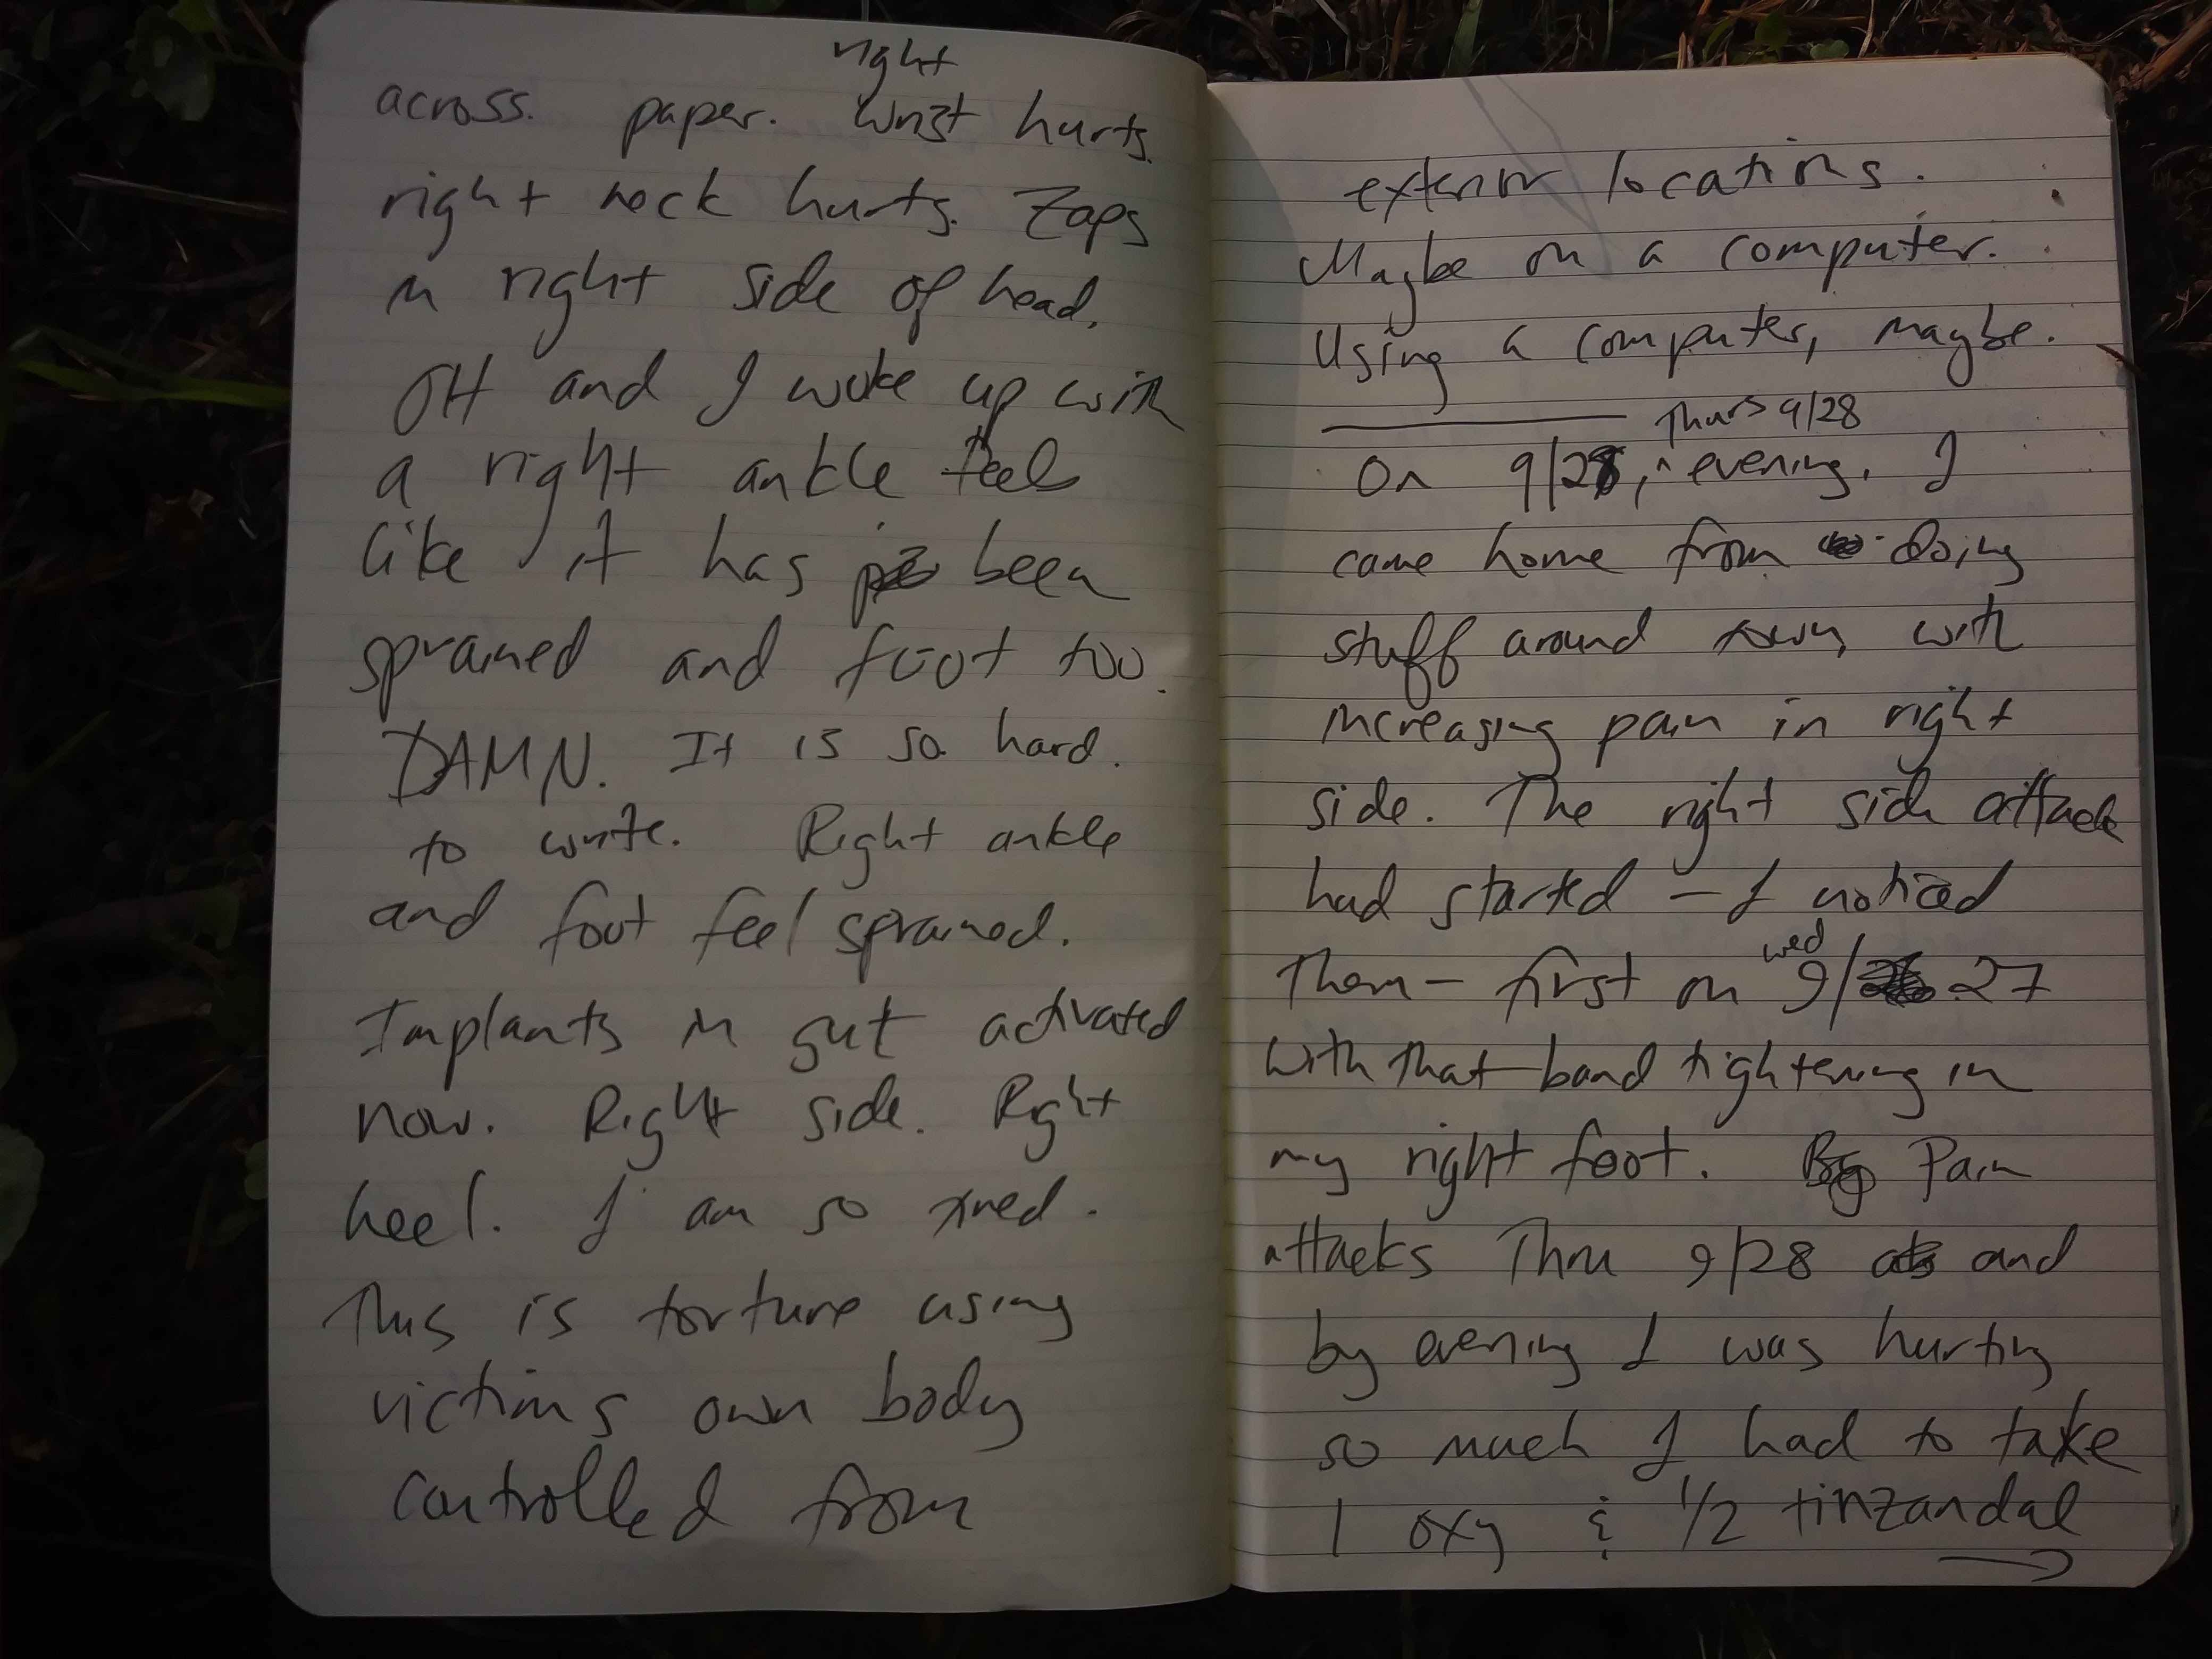 right
across. paper. wrist hurts.
right neck hurts. Zaps
in right side of head.
OH and I woke up with
a right ankle feels
like it has been
sprained and foot too.
DAMN. It is so hard.
to write. Right ankle
and foot feel sprained.
Implants in gut activated
now. Right side. Right
heel. I am so tired.
This is torture using
victims own body
controlled from
exterior locations.
Maybe on a computer.
Using a computer, maybe.
Thurs 9/28
On 9/28, ^ evening, I
came home from doing
stuff around town with
increasing pain in right
side. The right side attack
had started – I noticed
wed
them – first on 9/27
with that band tightening in
my right foot. Pain
attacks Thru 9/28 and
by evening I was hurting
so much I had to take
1 oxy & 1/2 tinzandal
→